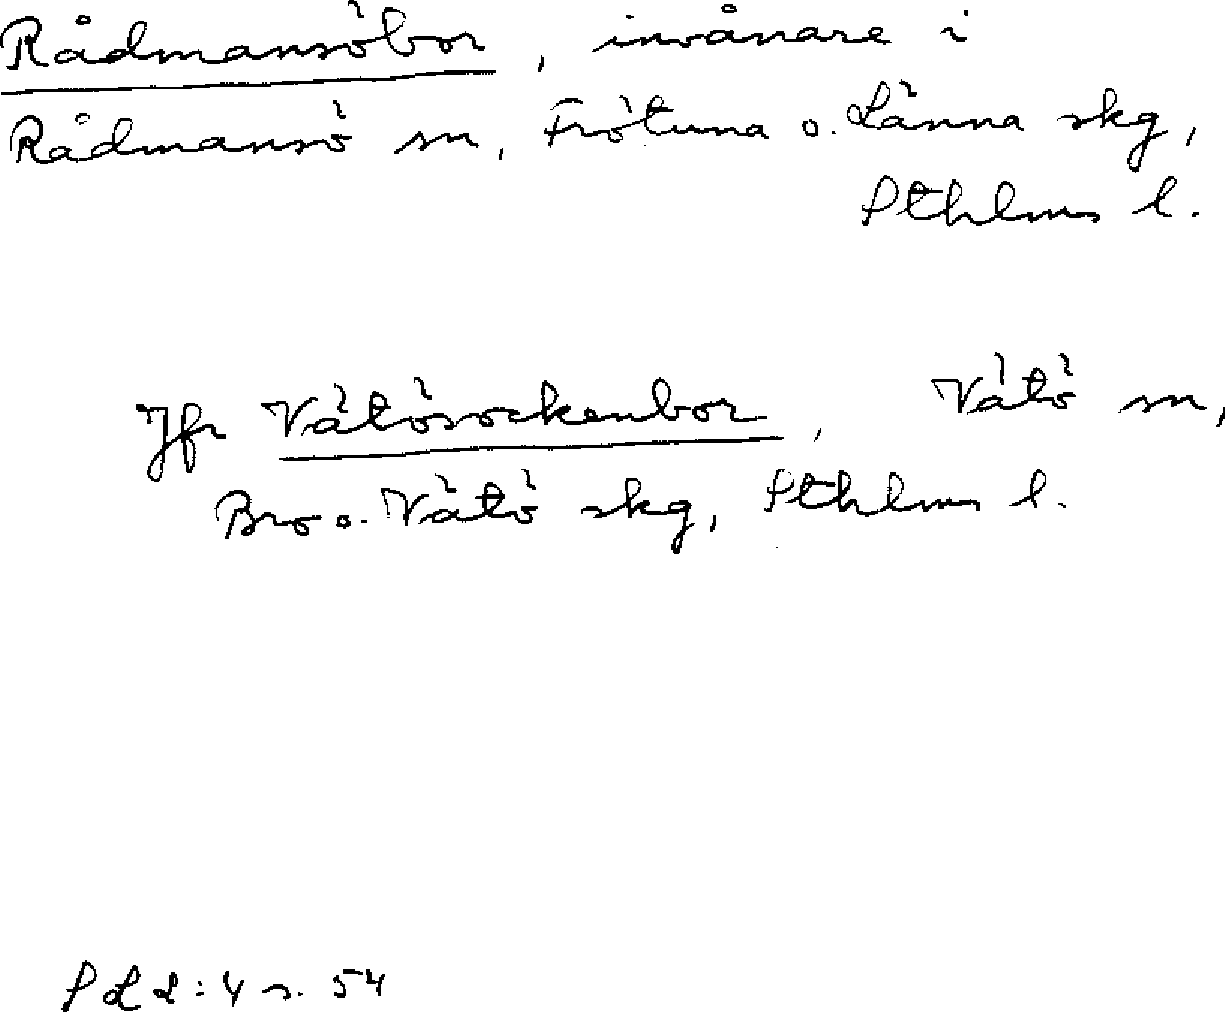 Rådmansöbor, invånare i
Rådmansö sn, Frötuna o. Länna skg,
Sthlms l.
Jfr Vätösockenbor, Vätö sn,
Bro o. Vätö skg, Sthlms l.
s. 54